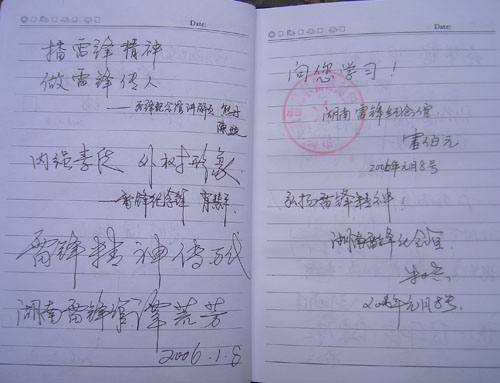 Date:
播雷锋精神
做雷锋传人
——雷锋纪念馆讲解员
内强素质 外树形象
——雷锋纪念馆
雷锋精神传万代
湖南雷锋馆谭荒芳
2006.1.8
Date:
向您学习!
湖南雷锋纪念馆
雷伯元
2006年元月8号
弘扬雷锋精神!
湖南雷锋纪念馆
2006年元月8号.